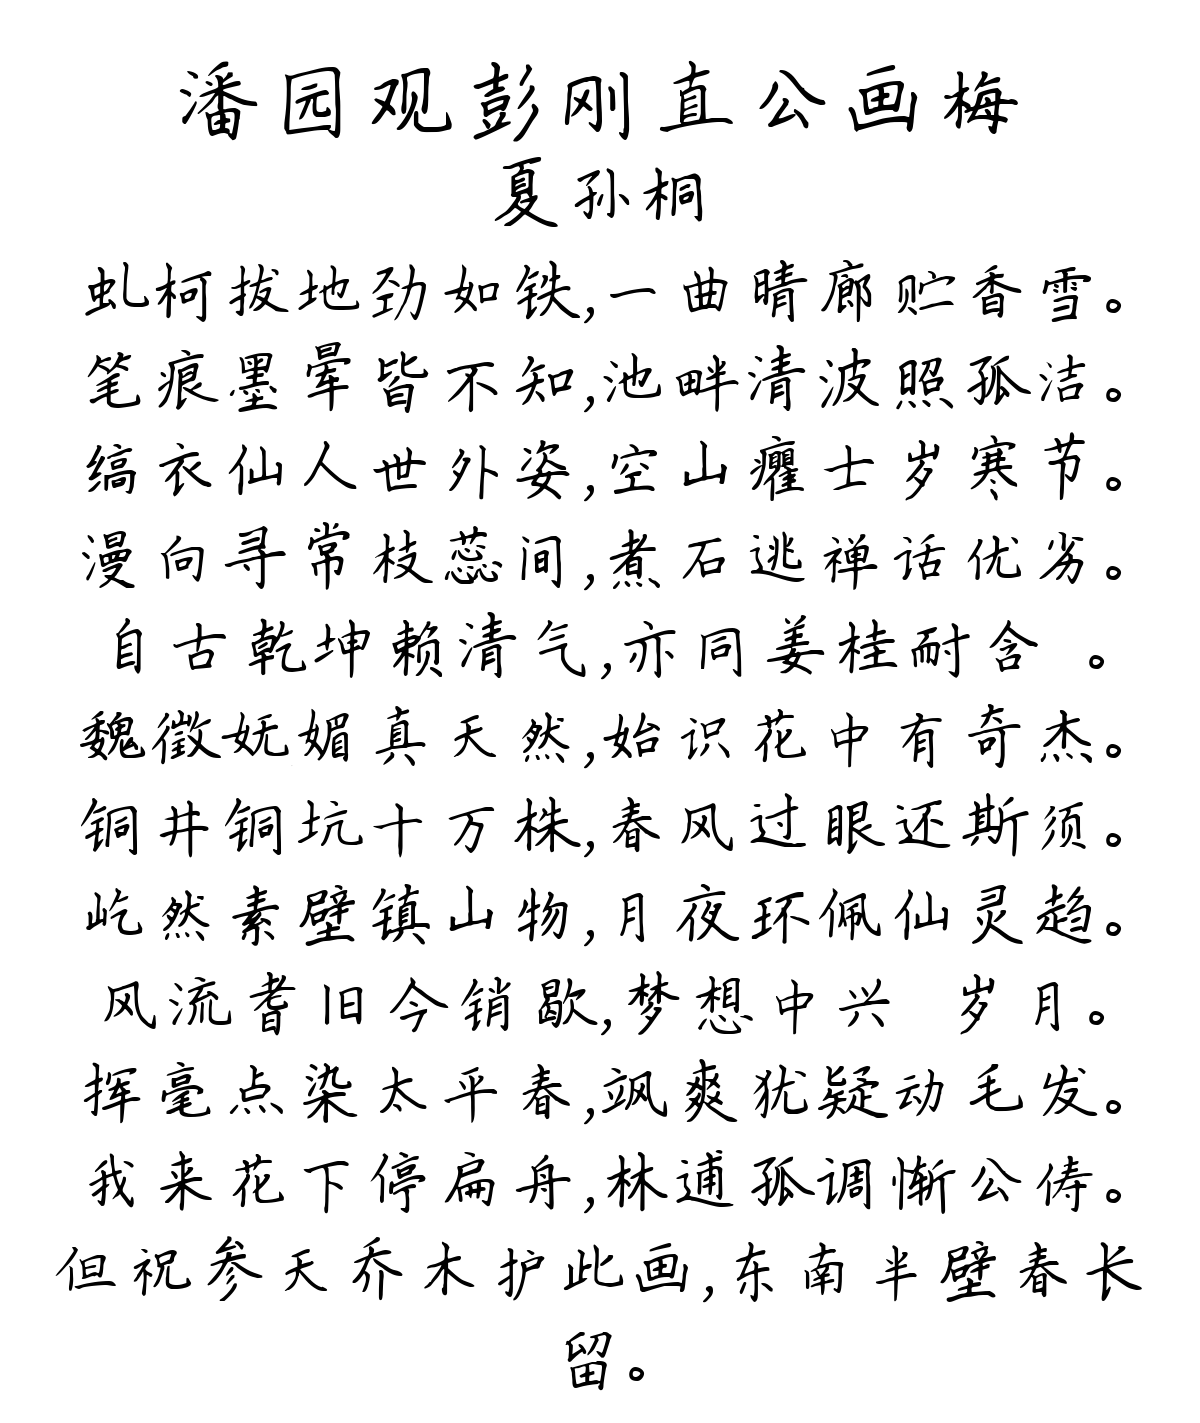 潘园观彭刚直公画梅
夏孙桐
虬柯拔地劲如铁,一曲晴廊贮香雪。
笔痕墨晕皆不知,池畔清波照孤洁。
缟衣仙人世外姿,空山癯士岁寒节。
漫向寻常枝蕊间,煮石逃禅话优劣。
自古乾坤赖清气,亦同姜桂耐含 。
魏徵妩媚真天然,始识花中有奇杰。
铜井铜坑十万株,春风过眼还斯须。
屹然素壁镇山物,月夜环佩仙灵趋。
风流耆旧今销歇,梦想中兴 岁月。
挥毫点染太平春,飒爽犹疑动毛发。
我来花下停扁舟,林逋孤调惭公俦。
但祝参天乔木护此画,东南半壁春长
留。